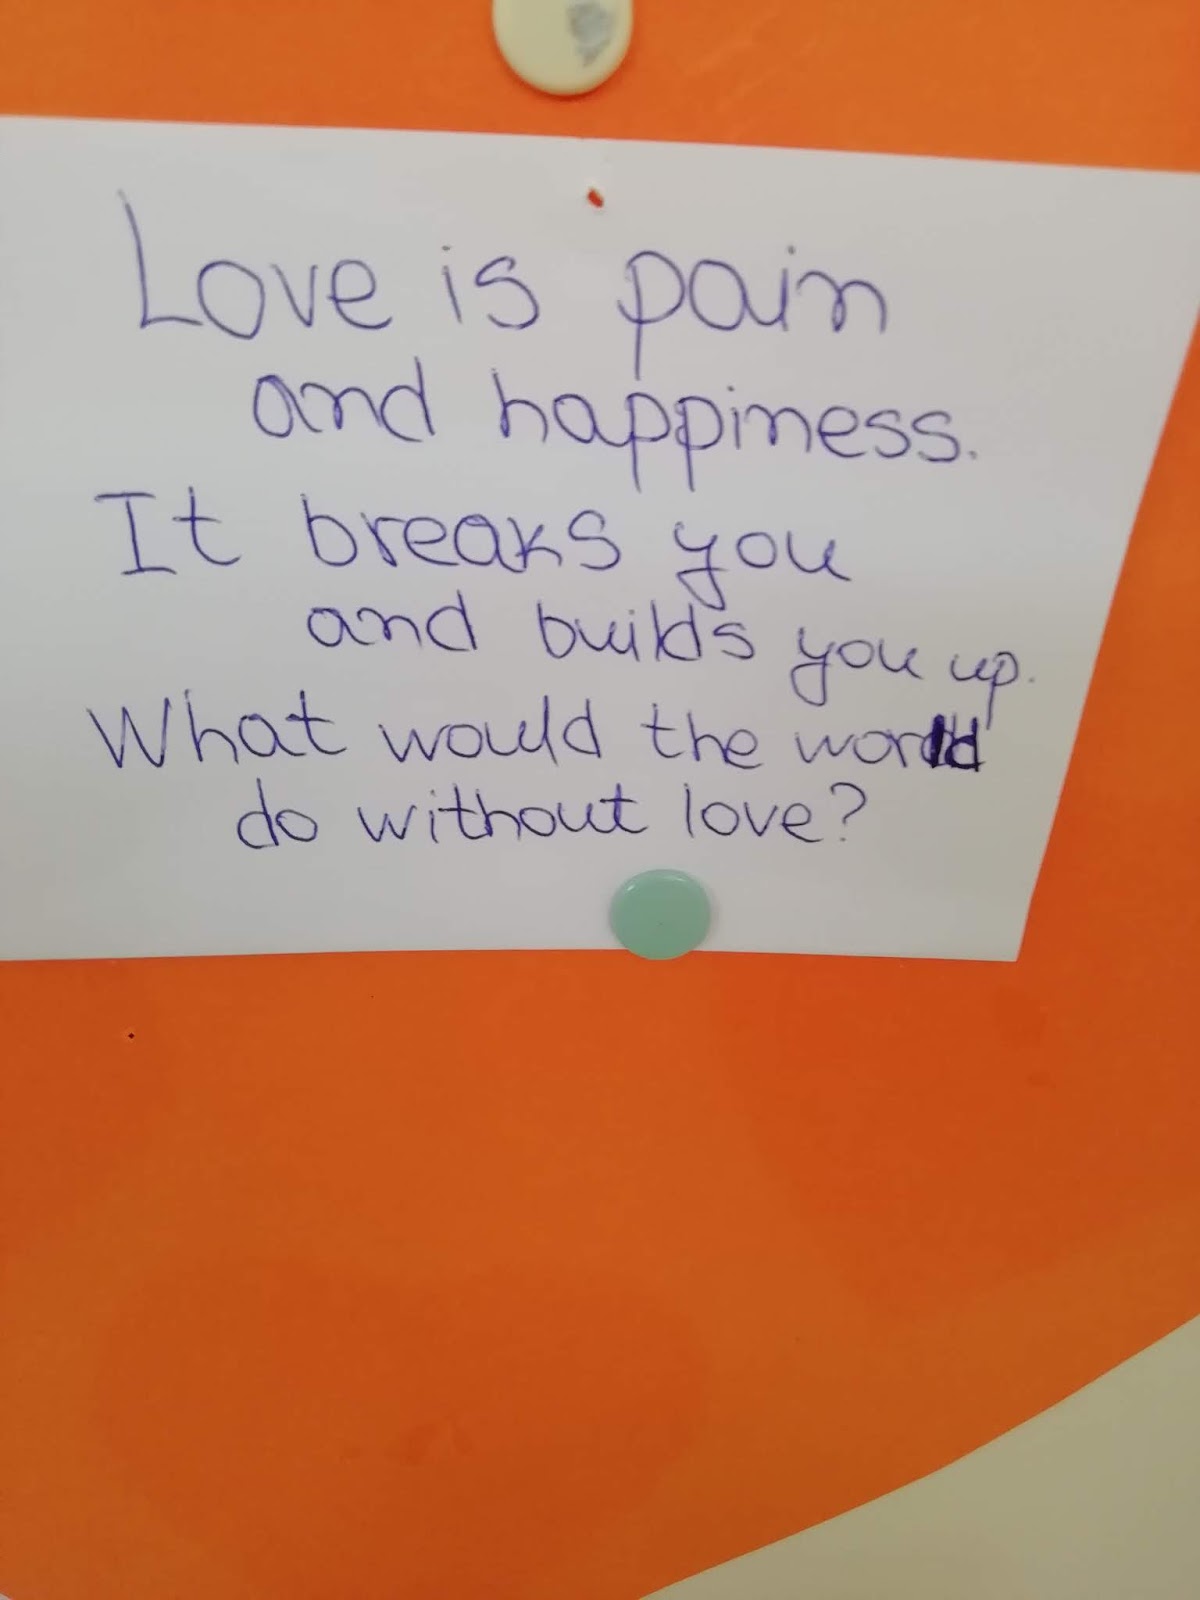 Love is pain
and happiness.
It breaks you
and builds you up.
What would the world
do without love?